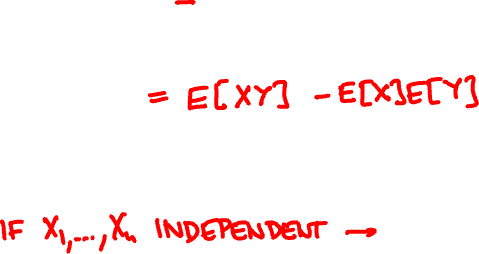 = E[XY] - E[X]E[Y]
IF X₁,...,Xₙ INDEPENDENT →